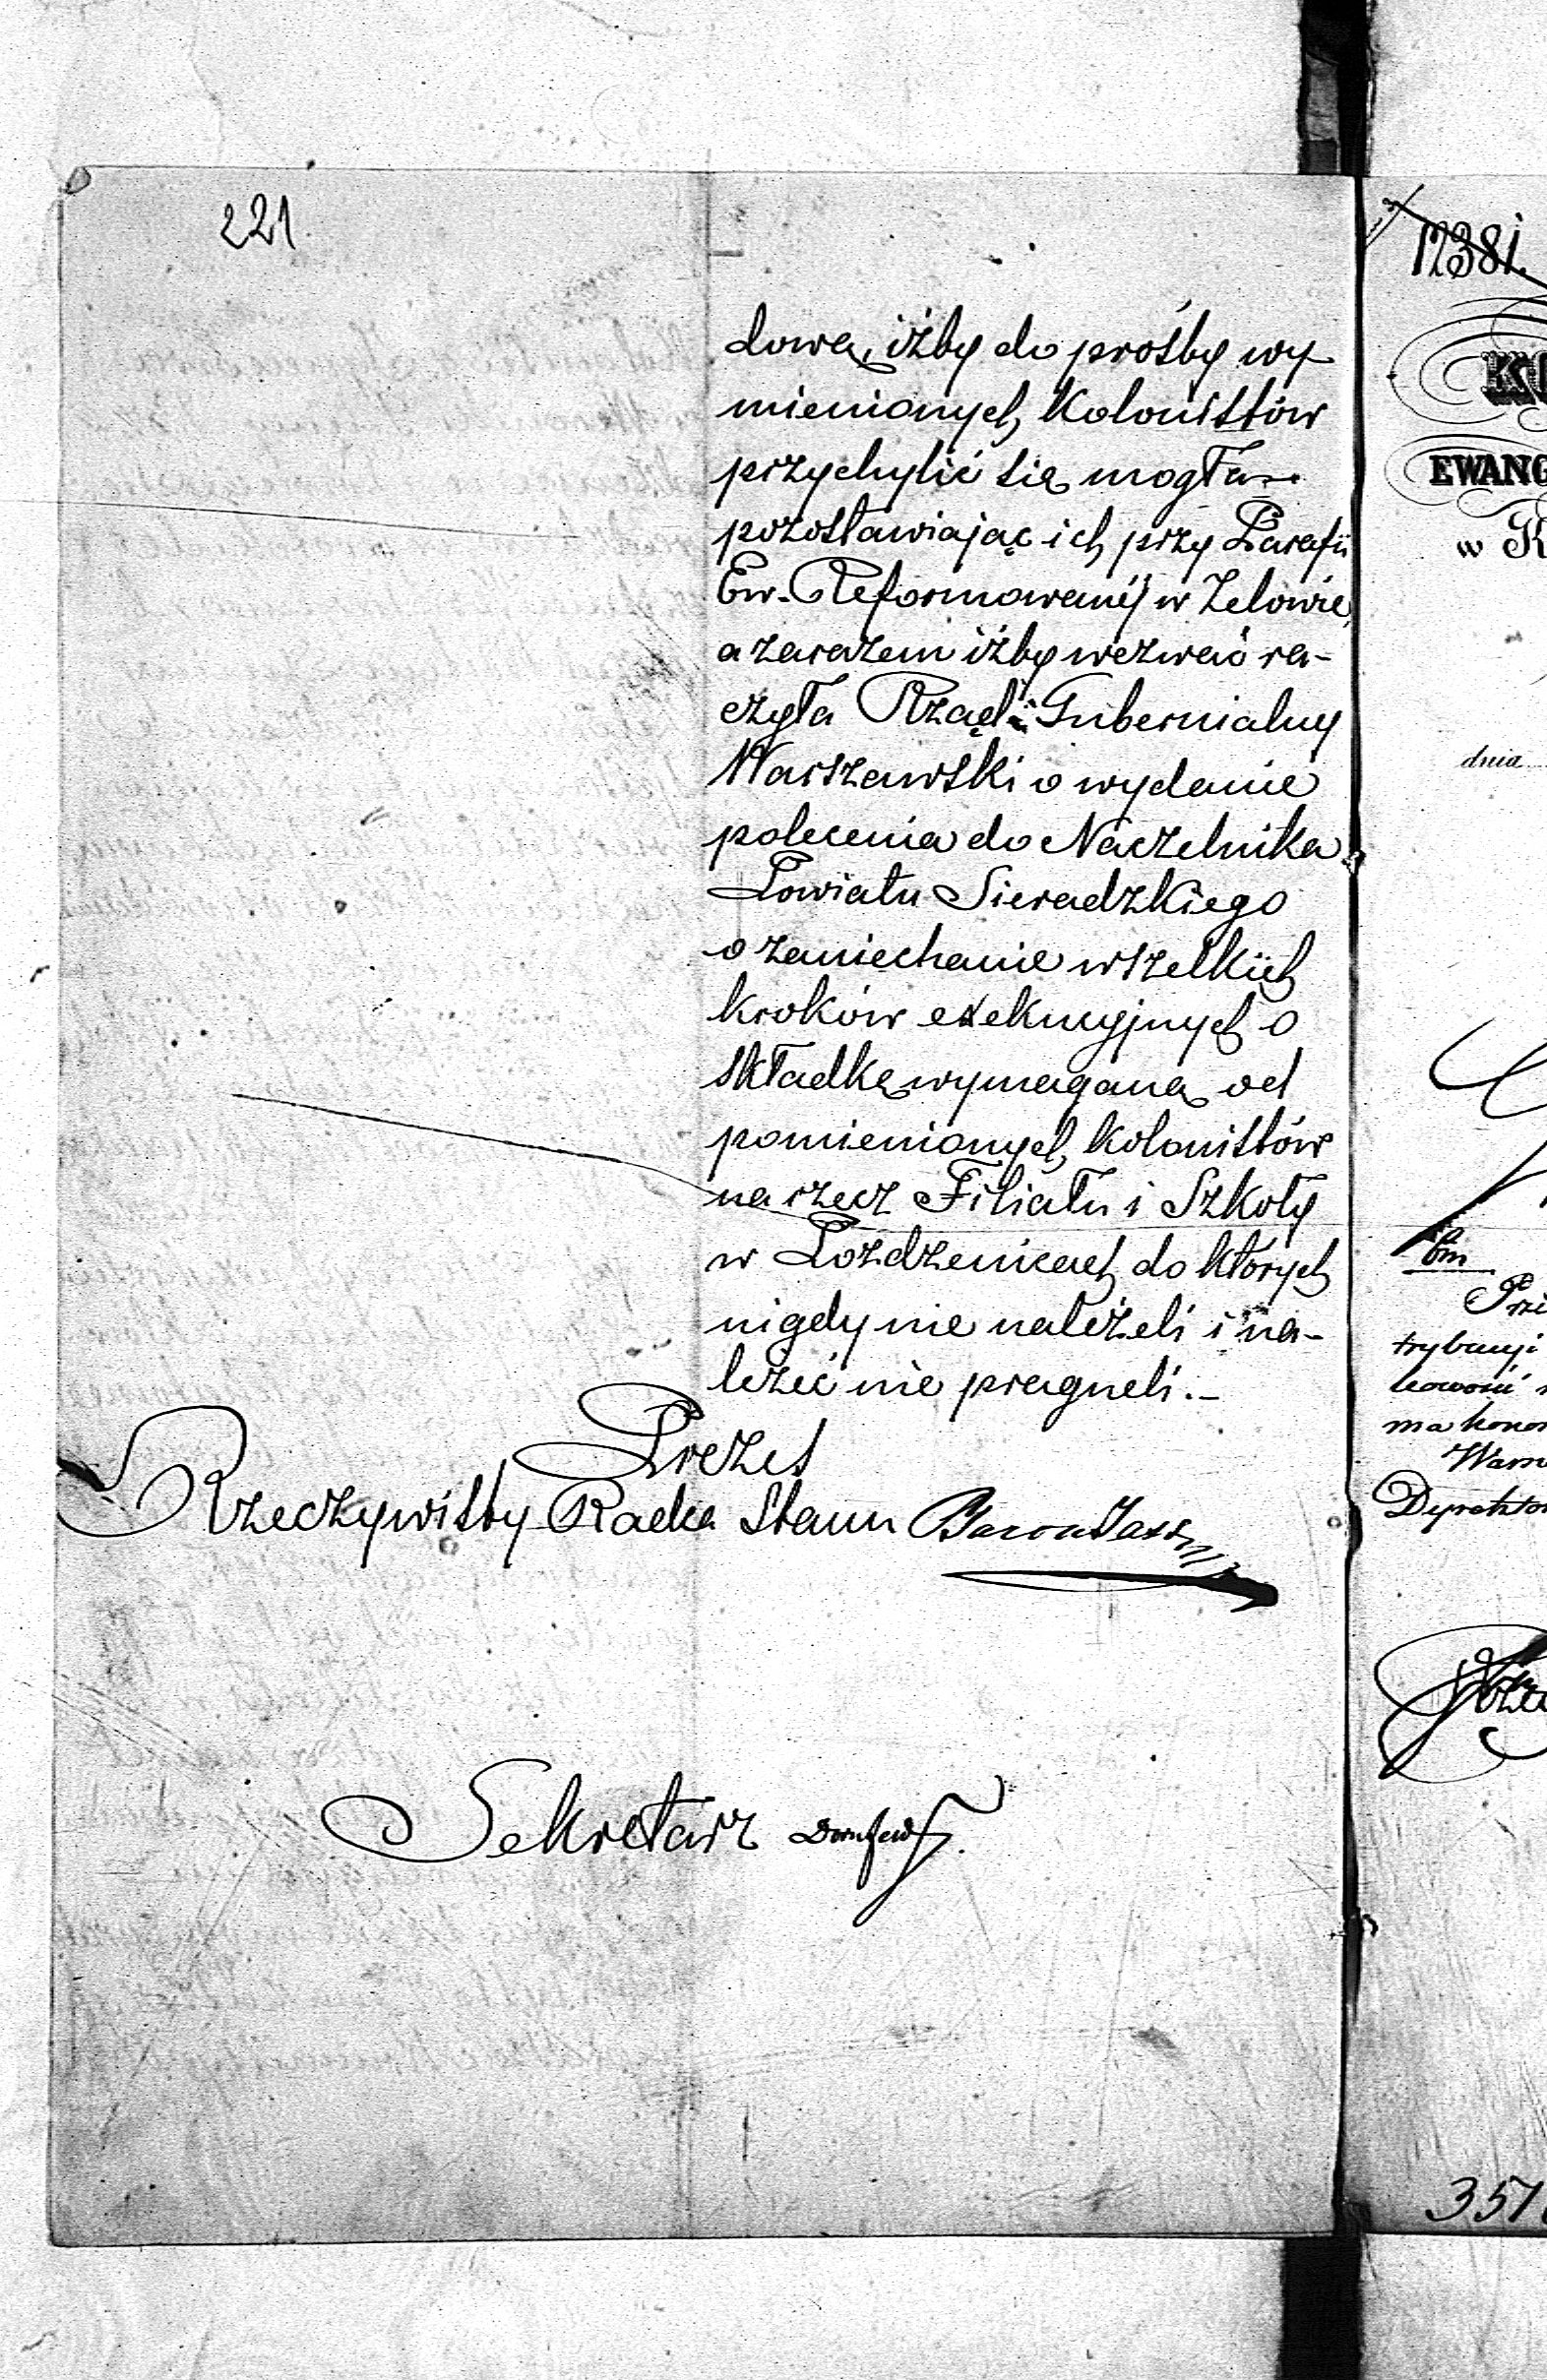 221.
dową, iżby do prośby wy-
mienionych Kolonistów
przychylić się mogła
pozostawiając ich przy Parafii
Ew. Reformowanéj w Zelowie,
a zarazem iżby wezwać ra-
czyła Rząd Gubernialny
Warszawski o wydanie
polecenia do Naczelnika
Powiatu Sieradzkiego
o zaniechanie wszelkich
kroków exekucyjnych o
składkę wymaganą od
pomienionych Kolonistów
na rzecz Filiału i Szkoły
w Pozdzenicach do których
nigdy nie należeli i na-
leżeć nie pragneli.-
Prezes
Rzeczywisty Radca Stanu Baron
Sekretarz
12381.
EWANG
w K
dnia
Prze
trybucyi
ma honor
Dyrektor